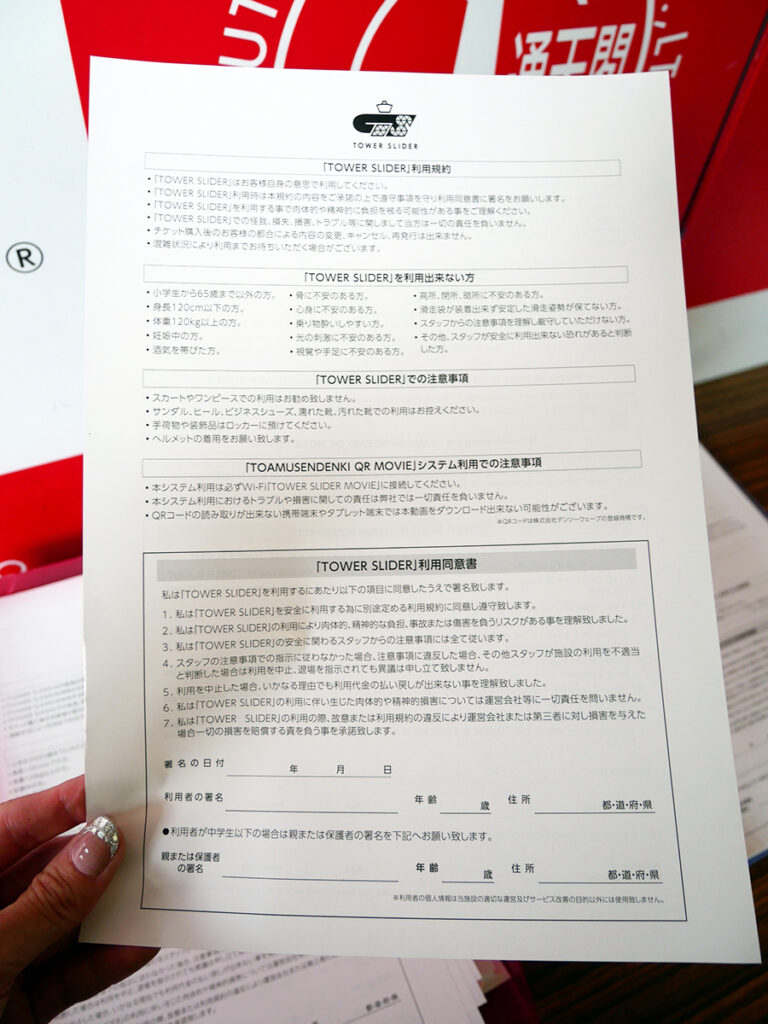 UT
通天閣
®
TOWER SLIDER
「TOWER SLIDER」利用規約
・「TOWER SLIDER」はお客様自身の意思で利用してください。
・「TOWER SLIDER」利用時は本規約の内容をご承諾の上で遵守事項を守り利用同意書に署名をお願いします。
・「TOWER SLIDER」を利用する事で肉体的や精神的に負担を被る可能性がある事をご理解ください。
・「TOWER SLIDER」での怪我、損失、損害、トラブル等に関しまして当方は一切の責任を負いません。
・チケット購入後のお客様の都合による内容の変更、キャンセル、再発行は出来ません。
・混雑状況により利用までお待ちいただく場合がございます。
「TOWER SLIDER」を利用出来ない方
・小学生から65歳まで以外の方。
・身長120cm以下の方。
・体重120kg以上の方。
・妊娠中の方。
・酒気を帯びた方。
・骨に不安のある方。
・心身に不安のある方。
・乗り物酔いしやすい方。
・光の刺激に不安のある方。
・視覚や手足に不安のある方。
・高所、閉所、暗所に不安のある方。
・滑走袋が装着出来ず安定した滑走姿勢が保てない方。
・スタッフからの注意事項を理解し厳守していただけない方。
・その他、スタッフが安全に利用出来ない恐れがあると判断
した方。
「TOWER SLIDER」での注意事項
・スカートやワンピースでの利用はお勧め致しません。
・サンダル、ヒール、ビジネスシューズ、濡れた靴、汚れた靴での利用はお控えください。
・手荷物や装飾品はロッカーに預けてください。
・ヘルメットの着用をお願い致します。
「TOAMUSENDENKI QR MOVIE」システム利用での注意事項
・本システム利用は必ずWi-Fi「TOWER SLIDER MOVIE」に接続してください。
・本システム利用におけるトラブルや損害に関しての責任は弊社では一切責任を負いません。
・QRコードの読み取りが出来ない携帯端末やタブレット端末では本動画をダウンロード出来ない可能性がございます。
※QRコードは株式会社デンソーウェーブの登録商標です。
「TOWER SLIDER」利用同意書
私は「TOWER SLIDER」を利用するにあたり以下の項目に同意したうえで署名致します。
1. 私は「TOWER SLIDER」を安全に利用する為に別途定める利用規約に同意し遵守致します。
2. 私は「TOWER SLIDER」の利用により肉体的、精神的な負担、事故または傷害を負うリスクがある事を理解致しました。
3. 私は「TOWER SLIDER」の安全に関わるスタッフからの注意事項には全て従います。
4. スタッフの注意事項での指示に従わなかった場合、注意事項に違反した場合、その他スタッフが施設の利用を不適当
と判断した場合は利用を中止、退場を指示されても異議は申し立て致しません。
5. 利用を中止した場合、いかなる理由でも利用代金の払い戻しが出来ない事を理解致しました。
6. 私は「TOWER SLIDER」の利用に伴い生じた肉体的や精神的損害については運営会社等に一切責任を問いません。
7. 私は「TOWER SLIDER」の利用の際、故意または利用規約の違反により運営会社または第三者に対し損害を与えた
場合一切の損害を賠償する責を負う事を承諾致します。
署名の日付 年 月 日
利用者の署名 年齢 歳 住所 都・道・府・県
●利用者が中学生以下の場合は親または保護者の署名を下記へお願い致します。
親または保護者
の署名 年齢 歳 住所 都・道・府・県
※利用者の個人情報は当施設の適切な運営及びサービス改善の目的以外には使用致しません。